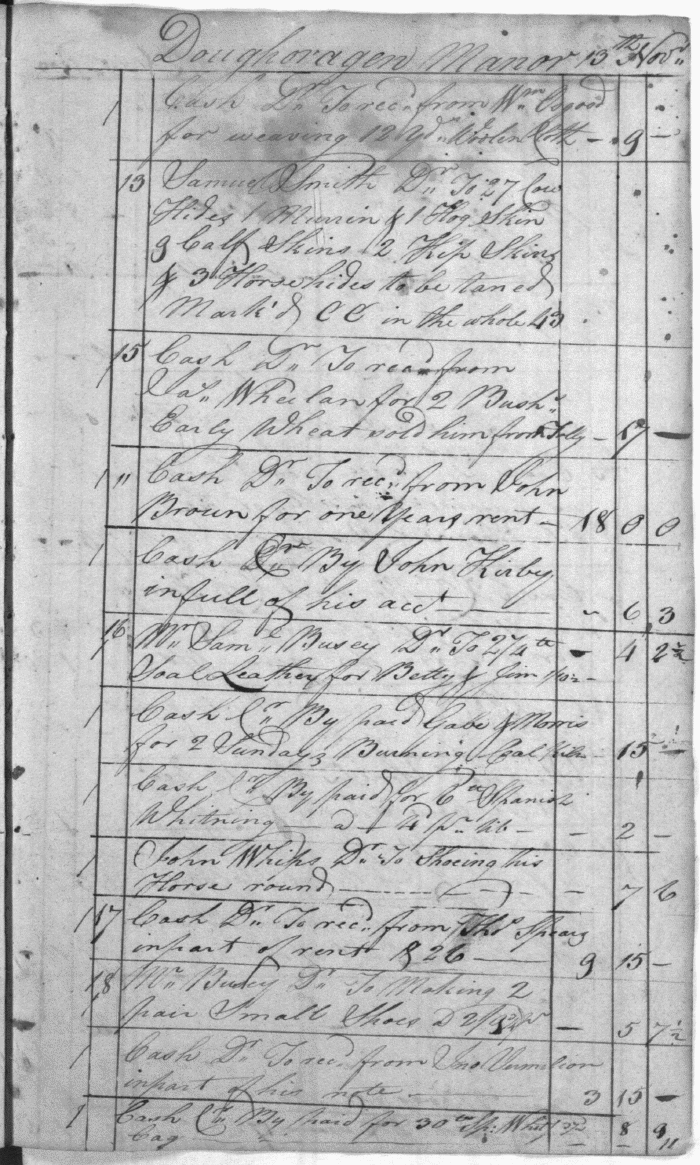 Doughoragen Manor 13th Novr
1 Cash Dr To recd from Wm Osgood
for weaving 12 Yds Woolen Cloth - 9 -
13 Samuel Smith Dr To 27 Cow
Hides 1 Murrin & 1 Hog Skin
9 Calf Skins 2 Kip Skins
& 3 Horse hides to be taned
Mark'd CC in the whole 43
15 Cash Dr To recd from
Jas Wheelan for 2 Bush
Early Wheat sold him from Folly - 17 -
1 " Cash Dr To recd from John
Brown for one Years rent - 18 0 0
1 Cash Cr By John Kirby
in full of his acct - " 6 3
16 Mr Saml Busey Dr To 2 3/4 lb - 4 2 1/2
Soal Leather for Betty & Jim
1 Cash Cr By paid Gabe & Morris
for 2 Sundays Burning Coal Kiln - 15 -
1 Cash Cr By paid for 6 lb Spanish
Whitning a 4d pr lb - - 2 -
1 John Whiks Dr To Shoeing his
Horse round - - 7 6
17 Cash Dr To recd from Thos Spears
in part of rent $26 - 9 15 -
18 Mr Busey Dr To Making 2
pair Small Shoes - 5 7 1/2
1 Cash Dr To recd from Jno
in part of his note - 3 15 -
1 Cash Cr By paid for 30 lb Sp: Whit 8 9
Cag